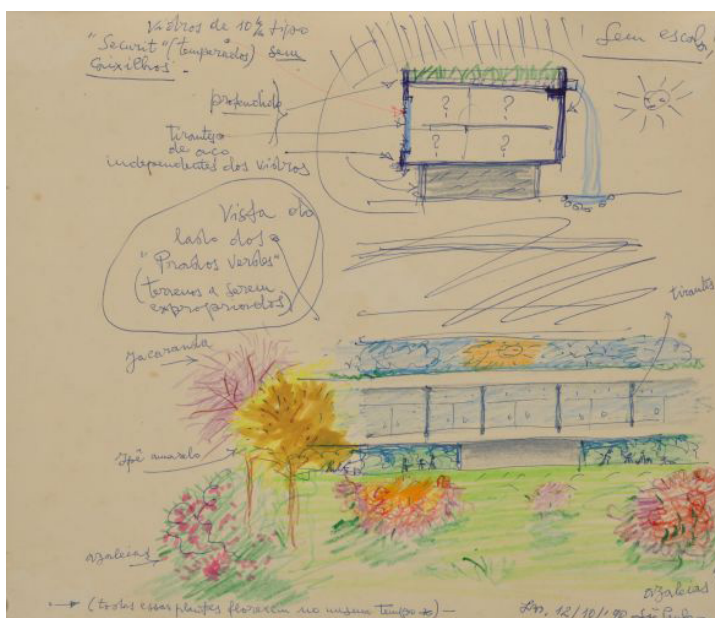 Vidros de 10 m/m tipo
"Securit" (temperados) sem
caixilhos.
! Sem escala!
profundida
tirantes
de aço
independentes dos vidros
? ?
? ?
Vista do
lado dos
"Prados Verdes"
(terrenos a serem
expropriados)
tirantes
Jacaranda
Ipê amarelo
azaleias
azaleias
(todas essas plantas florecem no mesmo tempo) —
12/10/90 São Paulo